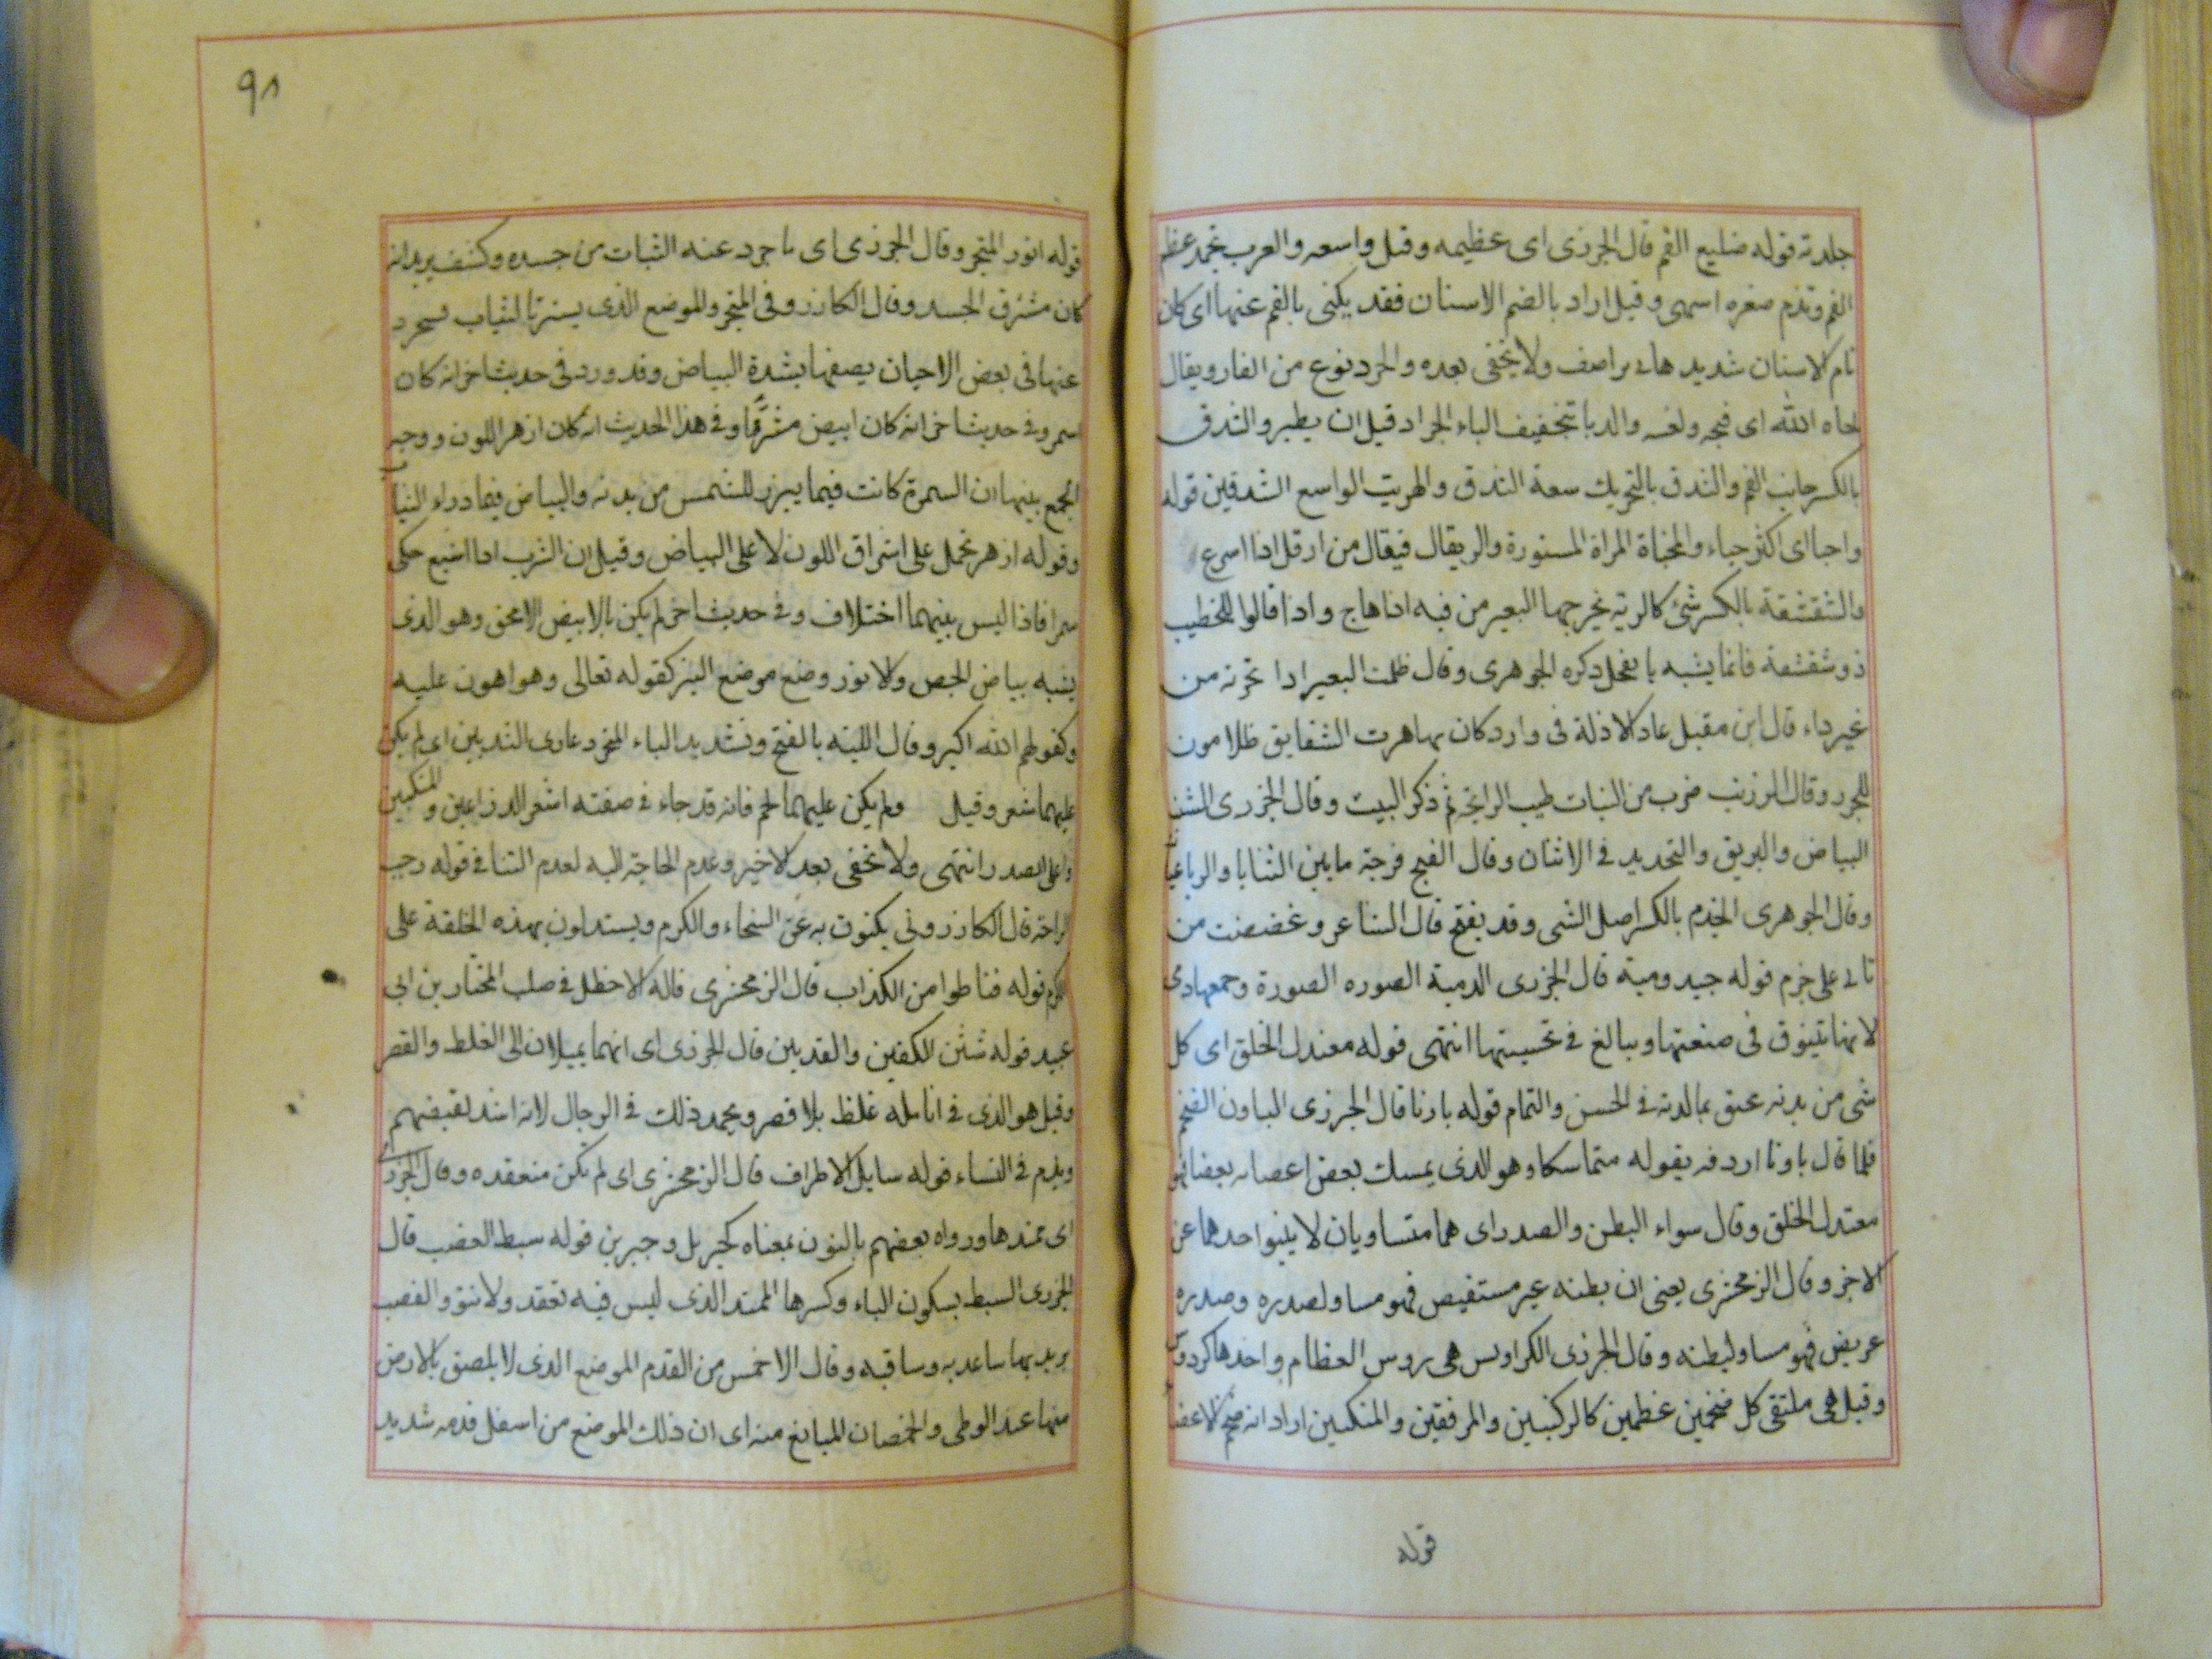 جلدته قوله ضليع الفم قال الجزری ای عظيمه وقيل واسعه والعرب تحمد عظم
الفم وتذم صغره اسمهی وقيل اراد بالضم الاسنان فقد يكنی بالفم عنها ای كان
تام الاسنان شديدها فی تراصف ولا يخفی بعده والجرد نوع من الفار ويقال
لحاه الله ای قبحه ولعنه والدبا بتخفيف الباء الجراد قبل ان يطير والشدق
بالكسر جانب الفم والشدق بالتحريك سعة الشدق والهريت الواسع الشدقين قوله
واحيا ای اكثر حياء والمخباة المراة المستورة والريقال فيقال من ارقل اذا اسرع
والشقشقة بالكسر شئ كالريه يخرجها البعير من فيه اذا هاج واذا قالوا للخطيب
ذو شقشقة فانما يشبه بالفحل ذكره الجوهری وقال ظلمت البعير اذا نحرته من
غير داء قال ابن مقبل عاد الاذلة فی دار وكان بها هرت الشقايق ظلامون
للجرر وقال الزرنب ضرب من النبات طيب الرايحة ثم ذكر البيت وقال الجزری الشنب
البياض والبريق والتحديد فی الاسنان وقال الفلج فرجة مابين الثنايا والرباعيات
وقال الجوهری الجذم بالكسر اصل الشی وقد يفتح قال الشاعر وعضضت من
نابی علی جزم قوله جيد دمية قال الجزری الدمية الصوره الصورة وجمعها دمی
لانها يتنوق فی صنعتها ويبالغ فی تحسينها انتهی قوله معتدل الخلق ای كل
شی من بدنه عبق بمالدته فی الحسن والتمام قوله بادنا قال الجزری البادن الضخم
فلما قال بادنا اردفه بقوله متماسكا وهو الذی يمسك بعض اعضائه بعضا فهو
معتدل الخلق وقال سواء البطن والصدر ای هما متساويان لا ينبو احدهما عن
الاخر وقال الزمخشری يعنی ان بطنه غير مستفيض فهو مساو لصدره وصدره
عريض فهو مساو لبطنه وقال الجزری الكراديس هی روس العظام واحدها كردوس
وقيل هی ملتقی كل ضخمين عظمين كالركبتين والمرفقين والمنكبين اراد انه ضخم الاعضاء
قوله
٩٨
قوله انور المتجرد وقال الجزری ای ما جرد عنه الثياب من جسده وكشف يريد انه
كان مشرق الجسد وقال الكازرونی المتجرد الموضع الذی يستر بالثياب فيتجرد
عنها فی بعض الاحيان يصفها بشدة البياض وقد ورد فی حديث اخر انه كان
اسمر وفی حديث اخر انه كان ابيض مشربا وفی هذا الحديث انه كان ازهر اللون ووجه
الجمع بينها ان السمرة كانت فيما يبرز للشمس من بدنه والبياض فيما وراء الثياب
وقوله ازهر تحمل علی اشراق اللون لا علی البياض وقيل ان الشرب اذا اشبع حكی
سمرا فاذا ليس بينهما اختلاف وفی حديث اخر لم يكن بالابيض الامحق وهو الذی
يشبه بياض الجص والانور وضع موضع النير كقوله تعالی وهو اهون عليه
وكقولهم الله اكبر وقال اللينه بالفتح وتشديد الباء المتجرد عاری الثديين ای لم يكن
عليهما شعر وقيل ولم يكن عليهما لحم فانه قد جاء فی صفته اشعر الذراعين والمنكبين
واعلی الصدر انتهی ولا يخفی بعد الاخير وعدم الحاجة اليه لعدم التنافی قوله رحب
الراحة قال الكازرونی يكنون به عن السخاء والكرم ويستدلون بهذه الخلقة علی
الكرم قوله فناطوا من الكذاب قال الزمخشری قاله الاخطل فی صلب المختار بن ابی
عبيد قوله شثن الكفين والقدمين قال الجزری ای انهما يميلان الی الغلظ والقصر
وقيل هو الذی فی انامله غلظ بلا قصر ويحمد ذلك فی الرجال لانه اشد لقبضهم
ويذم فی النساء قوله سايل الاطراف قال الزمخشری ای لم يكن منعقده وقال الجزری
ای ممتدها ورواه بعضهم بالنون بمعناه كجبريل وجبرين قوله سبط العضب قال
الجزری السبط بسكون الباء وكسرها الممتد الذی ليس فيه تعقد ولا نتو والقصب
يريد بها ساعديه وساقيه وقال الاخمص من القدم الموضع الذی لا يلصق بالارض
منها عند الوطی والخمصان المبالغ منه ای ان ذلك الموضع من اسفل قدمه شديد